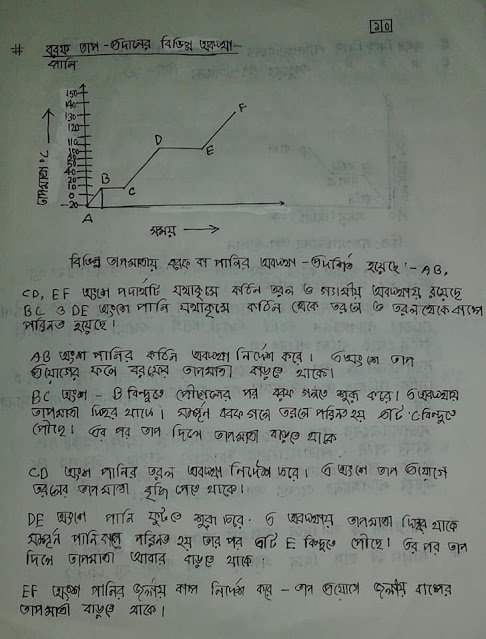 ২০
# বরফে তাপ-প্রদানের বিভিন্ন অবস্থা-
পানি
150
140
130
120
110
100
20
10
0
-20
A
B
C
D
E
F
তাপমাত্রা °C
সময়
বিভিন্ন তাপমাত্রায় বরফ বা পানির অবস্থা-প্রদর্শিত হয়েছে:- AB,
CD, EF অংশে পদার্থটি যথাক্রমে কঠিন তরল ও গ্যাসীয় অবস্থায় রয়েছে
BC ও DE অংশে পানি যথাক্রমে কঠিন থেকে তরলে ও তরল থেকে বাষ্পে
পরিনত হয়েছে।
AB অংশ পানির কঠিন অবস্থা নির্দেশ করে। এঅংশে তাপ
প্রয়োগের ফলে বরফের তাপমাত্রা বাড়তে থাকে।
BC অংশ - B বিন্দুতে পৌছানোর পর বরফ গলতে শুরু করে। এ অবস্থায়
তাপমাত্রা স্থির থাকে। সম্পূর্ন বরফ গলে তরলে পরিনত হয় এটি C বিন্দুতে
পৌছে। এর পর তাপ দিলে তাপমাত্রা বাড়তে থাকে
CD অংশ পানির তরল অবস্থা নির্দেশ করে। এ অংশে তাপ প্রয়োগে
তরলের তাপমাত্রা বৃদ্ধি পেতে থাকে।
DE অংশে পানি ফুটতে শুরু করে. এ অবস্থায় তাপমাত্রা স্থির থাকে
সম্পূর্ন পানি বাষ্পে পরিনত হয় তার পর এটি E বিন্দুতে পৌছে। এর পর তাপ
দিলে তাপমাত্রা আবার বাড়তে থাকে
EF অংশ পানির জলীয় বাষ্প নির্দেশ করে - তাপ প্রয়োগে জলীয় বাষ্পের
তাপমাত্রা বাড়তে থাকে।